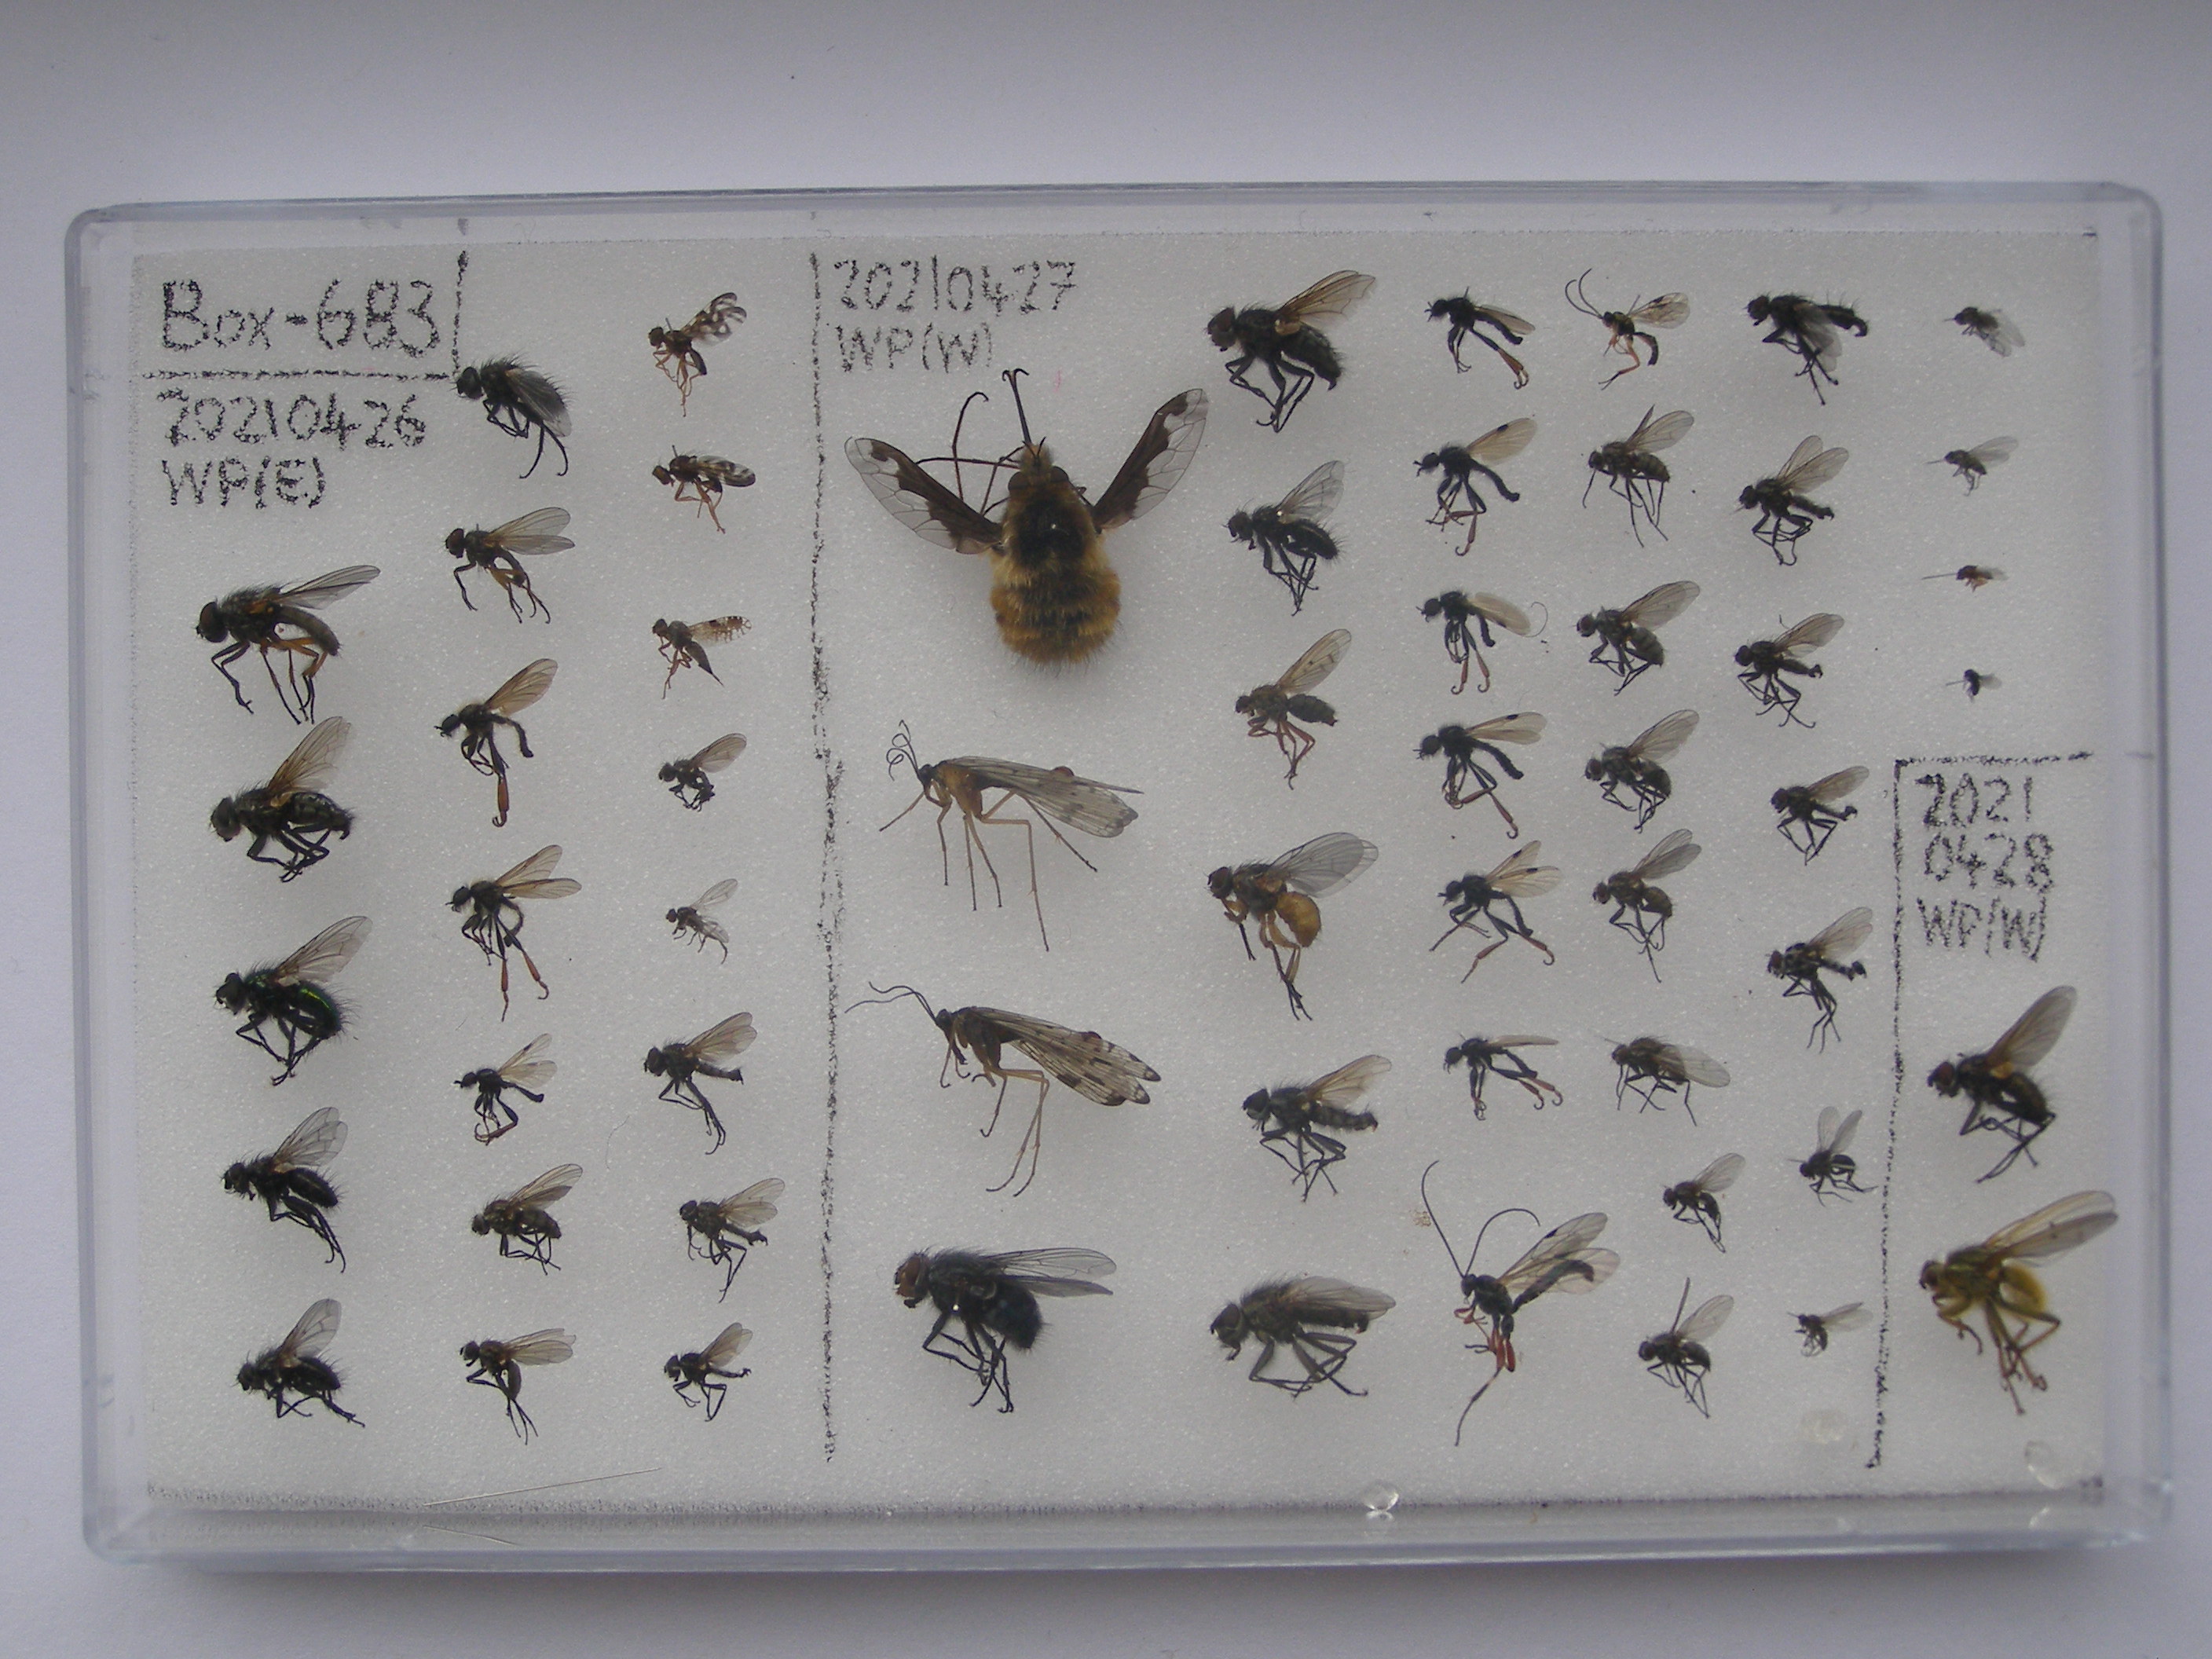 Box-683
20210426
WP(E)
20210427
WP(W)
2021
0428
WP(W)